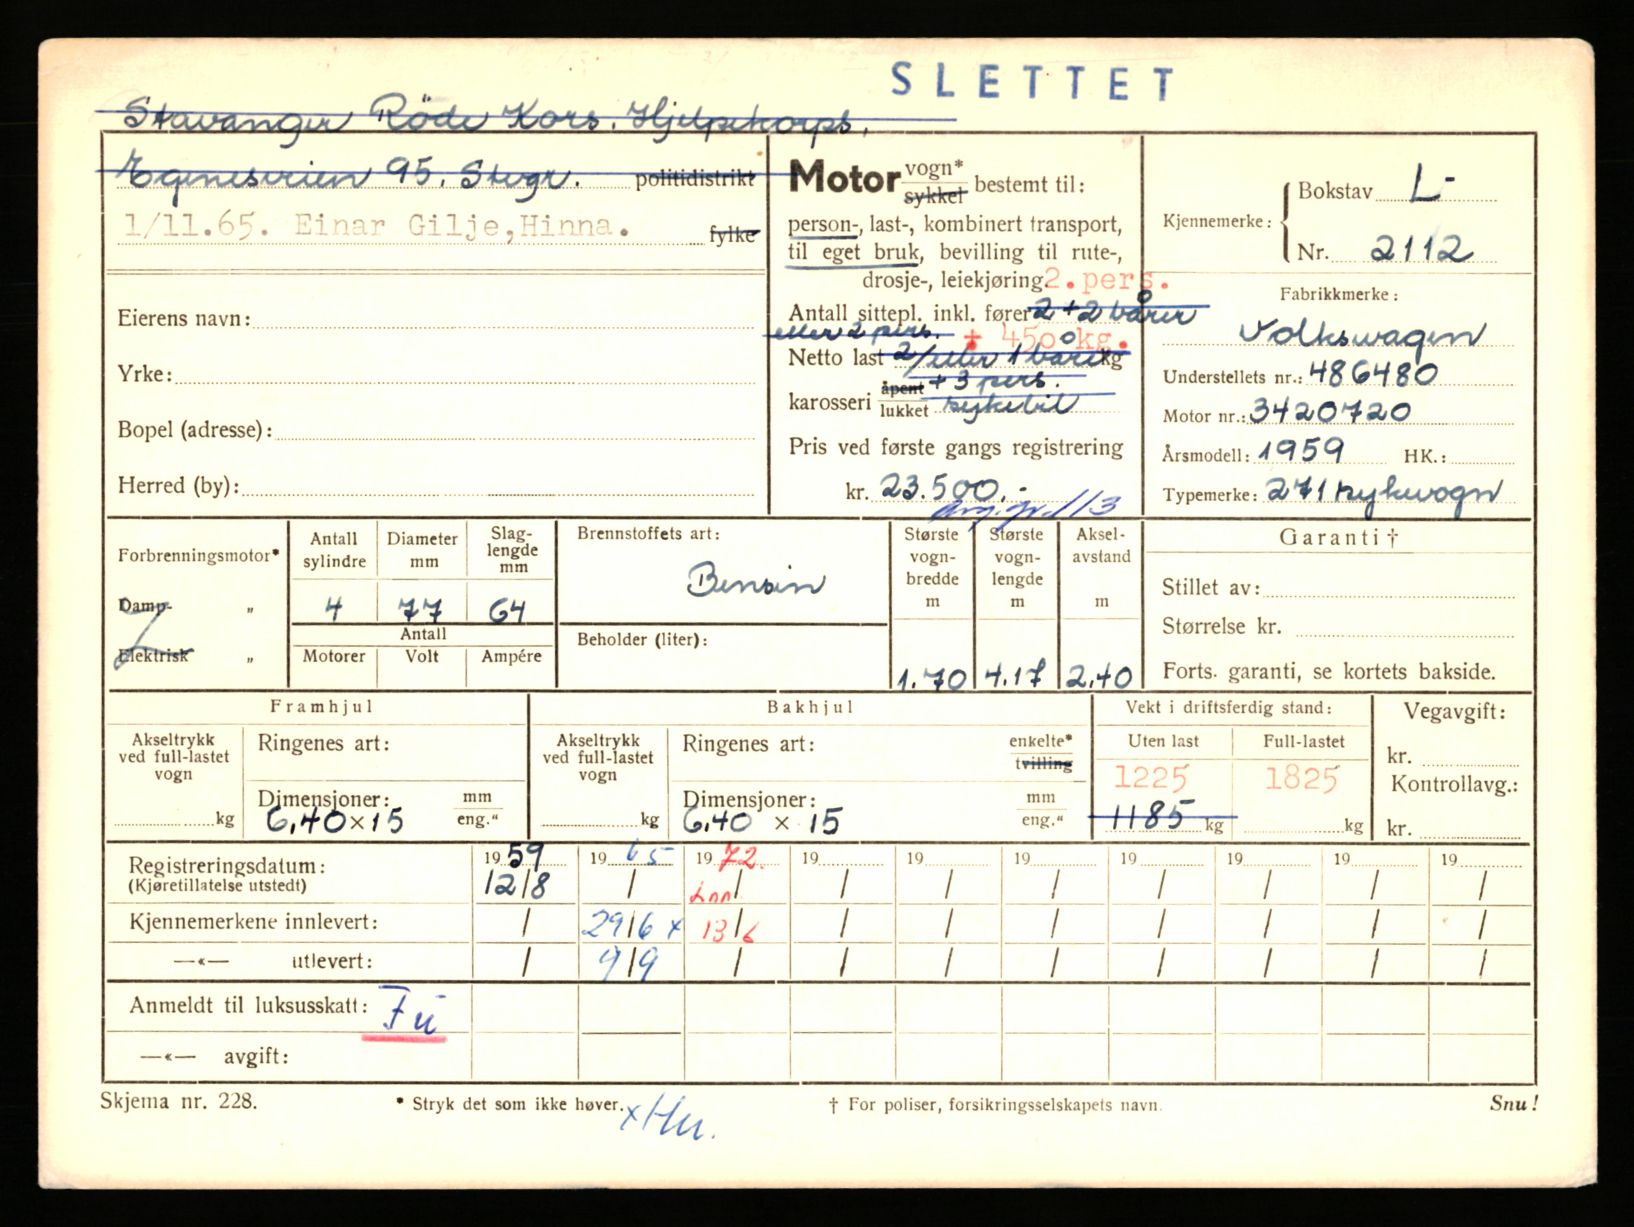 SLETTET
Stavanger Röde Kors. Hjelpekorps,
Egenesveien 95. Stvgr. politidistrikt
1/11.65. Einar Gilje,Hinna. fylke
Eierens navn:
Yrke:
Bopel (adresse):
Herred (by):
Motor vogn* sykkel bestemt til:
person-, last-, kombinert transport,
til eget bruk, bevilling til rute-,
drosje-, leiekjøring. 2.pers.
Antall sittepl. inkl. fører 2+2 bårer
eller 2 pers. + 450 kg.
Netto last 2/eller 1 båre kg
+ 3 pers.
karosseri åpent lukket sykebil
Pris ved første gangs registrering
kr. 23.500.-
Kjennemerke: Bokstav L-
Nr. 2112
Fabrikkmerke:
Volkswagen
Understellets nr.: 486480
Motor nr.: 3420720
Årsmodell: 1959 HK.:
Typemerke: 271 sykevogn
Forbrenningsmotor*
Damp- "
Elektrisk "
Antall sylindre
4
Diameter mm
77
Slag-lengde mm
64
Antall
Motorer Volt Ampére
Brennstoffets art:
Bensin
Beholder (liter):
Største vogn-bredde m
1.70
Største vogn-lengde m
4.17
Aksel-avstand m
2.40
Garanti †
Stillet av:
Størrelse kr.
Forts. garanti, se kortets bakside.
Framhjul
Akseltrykk ved full-lastet vogn
kg
Ringenes art:
Dimensjoner: mm eng."
6,40×15
Bakhjul
Akseltrykk ved full-lastet vogn
kg
Ringenes art: enkelte* tvilling
Dimensjoner: mm eng."
6,40 × 15
Vekt i driftsferdig stand:
Uten last Full-lastet
1225 1825
1185 kg kg
Vegavgift:
kr.
Kontrollavg.:
kr.
Registreringsdatum: 19 59 19 65 19 72. 19 19 19 19 19 19 19
(Kjøretillatelse utstedt) 12/8 / / / / / / / / /
Kjennemerkene innlevert: / 29/6 x 13/6 / / / / / / /
—«— utlevert: / 9/9 / / / / / / / /
Anmeldt til luksusskatt:
—«— avgift:
Skjema nr. 228. * Stryk det som ikke høver. † For poliser, forsikringsselskapets navn. Snu!